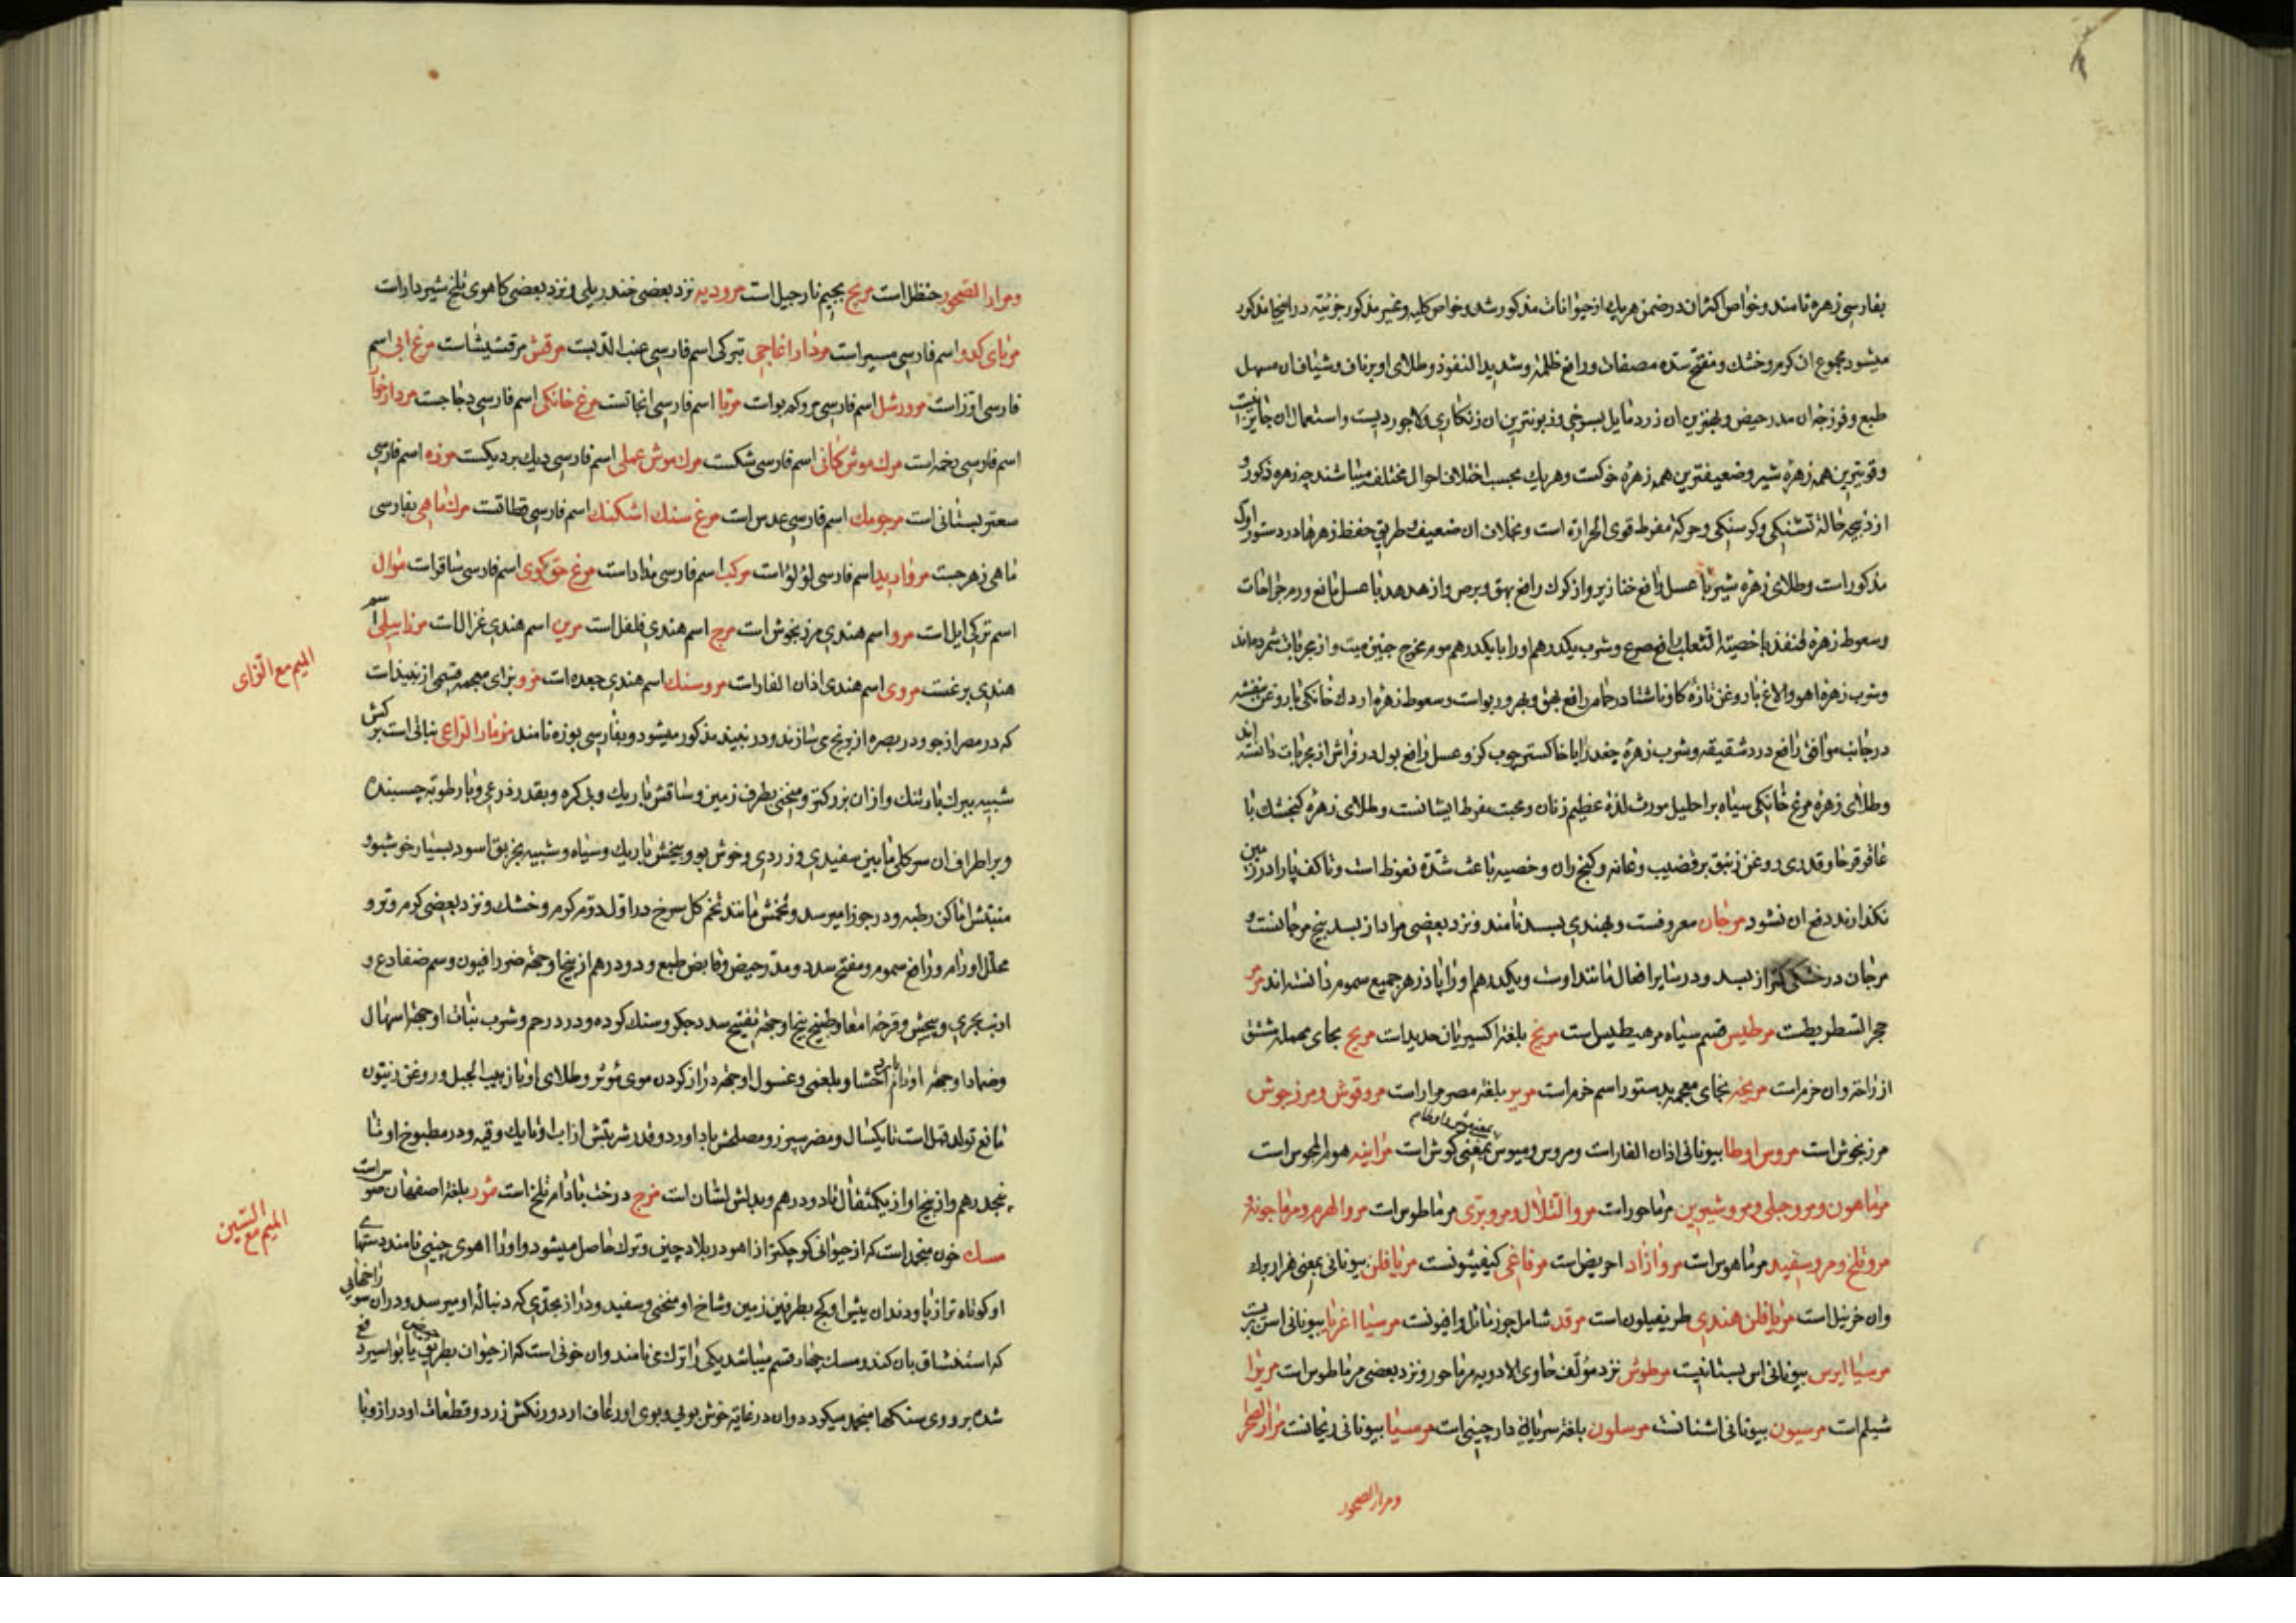 بفارسی زهره نامند و خواص اکثر ان در ضمن هر یك از حیوانات مذکور شد و خواص کلیه و غیر مذکور جزئیه در اینجا مذکور
میشود مجموع ان کرم و خشك و مفتح سده مصفات و رافع ظلمة و شدید النفوذ و طلای او بر ناف و شیاف ان مسهل
طبع و فرزجه ان مدر حیض و بهترین ان زرد مایل بسرخی و زبونترین ان زنکاری و لاجوردیست و استعمال ان جایز نیست
و قویترین همه زهرهٔ شیر و ضعیفترین همه زهرهٔ خوکست و هر یك بحسب اختلاف احوال مختلف میباشند چه زهره ذکور و
از ذبیحه حالة تشنکی و کرسنکی و حرکة مفرط قوی الحرارة است و بخلاف ان ضعیف و طریق حفظ زهرها در دستور اول
مذکور است و طلای زهرهٔ شیر با عسل رافع خنازیر و از کرك رافع بهق و برص و از هدهد با عسل نافع ورم جراحات
و سعوط زهرهٔ قنفذ با خصیة الثعلب رافع صرع و شرب یکدرهم او را با یکدرهم موم مخرج جنین میت و از مجربات شمرده‌اند
و شرب زهرهٔ اهو و الاغ با روغن تازهٔ کاو ناشتا در حمام رافع بهق و بهر و ربو است و سعوط زهرهٔ اردك خانکی با روغن بنفشه
در جانب موافق رافع درد شقیقه و شرب زهرهٔ جغد را با خاکستر چوب کز و عسل رافع بول در فراش از مجربات دانسته اند
و طلای زهرهٔ مرغ خانکی سیاه بر احلیل مورث لذة عظیم زنان و محبت مفرط ایشانست و طلای زهرهٔ کنجشك با
عاقرقرحا و قدری روغن زنبق بر قضیب و عانه و کنج ران و خصیه باعث شدة نعوظ است و تا کف پا را در زمین
نکذارند دفع ان نشود مرجان معروفست و بهندی بسد نامند و نزد بعضی مراد از بسد بیخ مرجانست و
مرجان در خشکی کمتر از بسد و در سایر افعال مانند اوست و یکدرهم او را پادزهر جمیع سموم دانسته اند مرمر
حجر السطریطست مرطیس قسم سیاه مرهیطیس است مریخ بلغة اکسیریان حدید است مریح بحای مهمله مشتق
از راحة و ان خمر است مریخه بخای معجمه بدستور اسم خمر است مریر بلغة مصر مرار است مروقوش و مرزجوش
مرزنجوش است مروس اوطا بیونانی اذان الفار است و مروس و میوس بمعنی کوش است مرانیه هو المجوس است
بمعنی موش و اوطا
مرماهون و مرو جبلی و مرو شیرین مرماحور است مرو التلال و مرو بری مرماطوس است مرو الهرم و مرماجوند و
مرو تلخ و مرو سفید مرماهوس است مرو ازاد احریض است مرفاغی کیفیثونست مریافلن بیونانی بمعنی هزار برك
و ان خرنبل است مریافلن هندی طریفیلون است مرقد شامل جوز ماثل و افیونست مرسیا اغریا بیونانی اس بریست
مرسیا ایرس بیونانی اس بستانیست مرطوش نزد مؤلف حاوی الادویه مرماحور و نزد بعضی مرماطوس است مریرا
شیلم است مرسیون بیونانی اشنانست مرسلون بلغة سریانی دارچینی است مرسیا بیونانی ریحانست مرار الصخر
و مرار الصحور
و مرار الصحور حنظل است مریج بجیم نارجیل است مرودیه نزد بعضی خندریلی و نزد بعضی کاهوی تلخ شیردار است
مربای کدو اسم فارسی مسیر است مردار اغاجی بترکی اسم فارسی عنب الذیبست مرقش مرقشیشا است مرغ ابی اسم
فارسی اوز است مرورشل اسم فارسی مروکه بو است مرتا اسم فارسی انجاتست مرغ خانکی اسم فارسی دجاجست مردار خوار
اسم فارسی رخمه است مرك موش کمانی اسم فارسی شکست مرك موش عملی اسم فارسی دیك بردیکست مرزه اسم فارسی
سعتر بستانی است مرجومك اسم فارسی عدس است مرغ سنك اشکنك اسم فارسی قطاقت مرك ماهی بفارسی
ماهی زهرجست مروارید اسم فارسی لؤلؤ است مرکب اسم فارسی مداد است مرغ حق کوی اسم فارسی ساقر است موال
اسم ترکی ایل است مرو اسم هندی مرزنجوش است مرچ اسم هندی فلفل است مرین اسم هندی غزال است مرداسیلی اسم
هندی برغست مروی اسم هندی اذان الفار است مروسنك اسم هندی جعده است مزر بزای معجمه قسمی از نبیذ است
المیم مع الزای
که در مصر از جو و در بصره از و نحوی سازند و در نبیذ مذکور میشود و بفارسی بوزه نامند مزمار الراعی نباتی است برکش
شبیه ببرك بارتنك و از ان بزرکتر و منحنی بطرف زمین و ساقش باریك و بی کره و بقدر ذرعی و با رطوبة چسبنده
و بر اطراف ان سر کلی مابین سفیدی و زردی و خوش بو و بیخش باریك و سیاه و شبیه بخربق اسود بسیار خوشبو و
منبتش اماکن رطبه و در جوزا میرسد و تخمش مانند تخم کل سرخ در اول دوم کرم و خشك و نزد بعضی کرم و تر و
محلل اورام و رافع سموم و مفتح سدد و مدر حیض و قابض طبع و دو درهم از بیخ او جهة ضرر افیون و سم ضفادع و
ارنب بحری و پیچش و قرحهٔ امعا و طبیخ بیخ او جهة تفتیح سدد جکر و سنك کرده و درد رحم و شرب نبات او جهة اسهال
و ضماد او جهة اورام احشا و بلغمی و غسول او جهة دراز کردن موی موثر و طلای او با زبیب الجبل و روغن زیتون
مانع تولد قمل است تا یکسال و مضر سپرز و مصلحش باداورد و قدر شربتش از اب او تا یك وقیه و در مطبوخ او تا
پنجدرهم و از بیخ او از یکمثقال تا دو درهم و بدلش لشان است مزج درخت بادام تلخ است مزر بلغة اصفهان صوس است
مسك خون منجمد است که از حیوانی کوچکتر از اهو در بلاد چین و ترك حاصل میشود و او را اهوی چینی نامند دستهای
المیم مع السین
او کوتاه تر از پا و دندان پیش او کج بطرف زمین و شاخ او منحنی و سفید و دراز بحدی که دنبالهٔ او میرسد و در ان سوراخهایی
که استنشاق بان کند و مسك چهار قسم میباشد یکی را ترکی نامند و ان خونی است که از حیوان بطریق حیض یا بواسیر دفع
شده بر روی سنکها منجمد میکردد و ان در غایة خوش بویی و بوی او رعاف ارد و رنکش زرد و قطعات او دراز و با